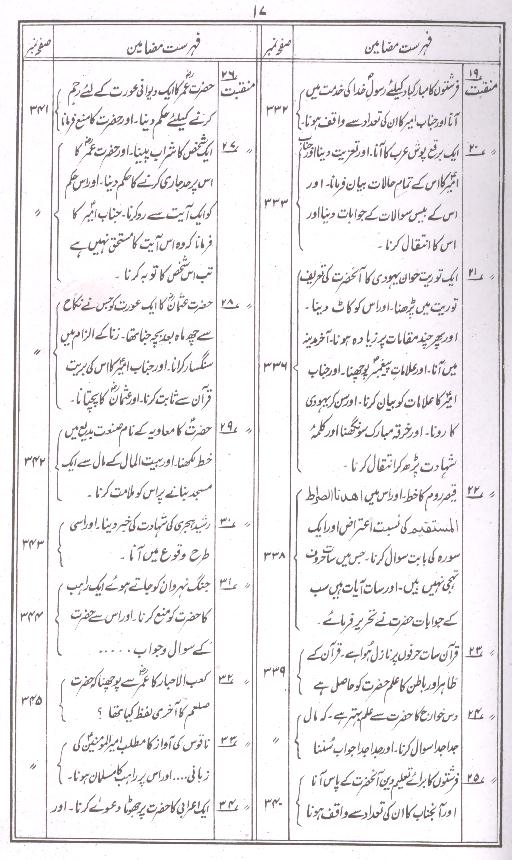 ۱۷
فہرست مضامین صفحہ نمبر
منقبت ۱۹ فرشتوں کا مبارکباد کیلئے رسول خدا کی خدمت میں
آنا اور جناب امیر کا ان کی تعداد سے واقف ہونا۔ ۳۳۲
۲۰ ایک برقع پوش عرب کا آنا۔ اور تعزیت دینا اور جناب
امیر کا اس کے تمام حالات بیان فرمانا۔ اور
اس کے بیس سوالات کے جوابات دینا اور ۳۳۳
اس کا انتقال کرنا۔
۲۱ ایک توریت خوان یہودی کا آنحضرت کی تعریف
توریت میں پڑھنا۔ اور اس کو کاٹ دینا۔
اور پھر چند مقامات پر زیادہ ہونا۔ آخر مدینہ
میں آنا۔ اور علامات پیغمبر پوچھنا۔ اور جناب ۳۳۶
امیر کا علامات کو بیان کرنا۔ اور سن کر یہودی
کا رونا۔ اور خرقہ مبارک سونگھنا اور کلمہ
شہادت پڑھ کر انتقال کرنا۔
۲۲ قیصر روم کا خط۔ اور اس میں اھدنا الصراط
المستقیم کی نسبت اعتراض اور ایک
سورہ کی بابت سوال کرنا۔ جس میں سات حروف ۳۳۸
تہجی نہیں ہیں۔ اور سات آیات ہیں سب
کے جوابات حضرت نے تحریر فرمائے۔
۲۳ قرآن سات حرفوں پر نازل ہوا ہے۔ قرآن کے
ظاہر اور باطن کا علم حضرت کو حاصل ہے ۳۳۹
۲۴ دس خوارج کا حضرت سے علم بہتر ہے۔ کہ مال
جدا جدا سوال کرنا۔ اور جدا جدا جواب سننا 〃
۲۵ فرشتوں کا برائے تعلیم دین آنحضرت کے پاس آنا
اور آنجناب کا ان کی تعداد سے واقف ہونا ۳۴۰
فہرست مضامین صفحہ نمبر
منقبت ۲۶ حضرت عمر کا ایک دیوانی عورت کے لئے رجم
کرنے کیلئے حکم دینا۔ اور حضرت کا منع فرمانا ۳۴۱
۲۷ ایک شخص کا شراب پینا۔ اور حضرت عمر کا
اس پر حد جاری کرنے کا حکم دینا۔ اور اس حکم
کو ایک آیت سے روکنا۔ جناب امیر کا 〃
فرمانا کہ وہ اس آیت کا مستحق نہیں ہے
تب اس شخص کا توبہ کرنا۔
۲۸ حضرت عثمان کا ایک عورت کو جس نے نکاح
سے چھ ماہ بعد بچہ جنا تھا۔ زنا کے الزام میں
سنگسار کرانا۔ اور جناب امیر کا اس کی بریت 〃
قرآن سے ثابت کرنا۔ اور عثمان کا پچتانا۔
۲۹ حضرت کا معاویہ کے نام صنعت بدیع میں
خط لکھنا۔ اور بیت المال کے مال سے ایک ۳۴۲
مسجد بنانے پر اس کو ملامت کرنا۔
۳۰ رشید ہجری کی شہادت کی خبر دینا۔ اور اسی
طرح وقوع میں آنا۔ ۳۴۳
۳۱ جنگ نہروان کو جاتے ہوئے ایک راہب
کا حضرت کو منع کرنا۔ اور اس سے حضرت ۳۴۴
کے سوال و جواب.....
۳۲ کعب الاحبار کا عمر سے پوچھنا کہ حضرت
صلعم کا آخری لفظ کیا تھا؟ ۳۴۵
۳۳ ناقوس کی آواز کا مطلب امیرالمومنین کی
زبانی.... اور اس پر راہب کا مسلمان ہونا۔ 〃
۳۴ ایک اعرابی کا حضرت پر جھوٹا دعوے کرنا۔ اور